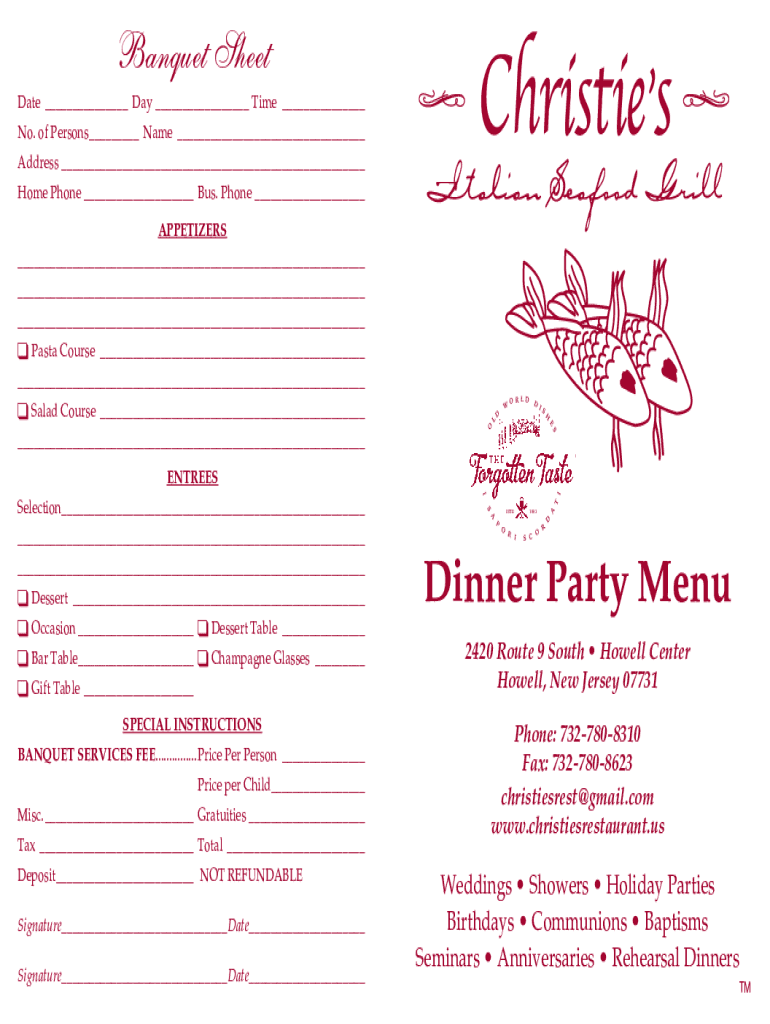 Banquet Sheet
Date _______________ Day _________________ Time _______________
No. of Persons_________ Name __________________________________
Address _______________________________________________________
Home Phone ____________________ Bus. Phone ____________________
APPETIZERS
_______________________________________________________________
_______________________________________________________________
_______________________________________________________________
❑ Pasta Course ________________________________________________
_______________________________________________________________
❑ Salad Course ________________________________________________
_______________________________________________________________
ENTREES
Selection_______________________________________________________
_______________________________________________________________
_______________________________________________________________
❑ Dessert _____________________________________________________
❑ Occasion _____________________ ❑ Dessert Table _______________
❑ Bar Table_____________________ ❑ Champagne Glasses _________
❑ Gift Table ____________________
SPECIAL INSTRUCTIONS
BANQUET SERVICES FEE...............Price Per Person _______________
Price per Child_________________
Misc. ___________________________ Gratuities _____________________
Tax ____________________________ Total _________________________
Deposit_________________________ NOT REFUNDABLE
Signature______________________________Date_____________________
Signature______________________________Date_____________________
Christie's
Italian Seafood Grill
OLD WORLD DISHES
THE
Forgotten Taste
I SAPORI SCORDATI
Dinner Party Menu
2420 Route 9 South • Howell Center
Howell, New Jersey 07731
Phone: 732-780-8310
Fax: 732-780-8623
christiesrest@gmail.com
www.christiesrestaurant.us
Weddings • Showers • Holiday Parties
Birthdays • Communions • Baptisms
Seminars • Anniversaries • Rehearsal Dinners
TM